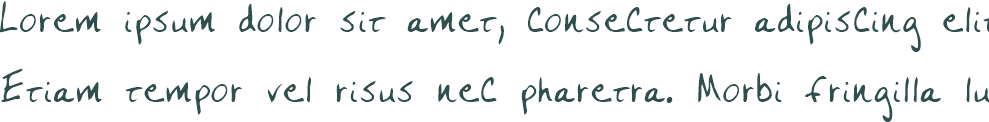 Lorem ipsum dolor sit amet, consectetur adipiscing elit
Etiam tempor vel risus nec pharetra. Morbi fringilla lu